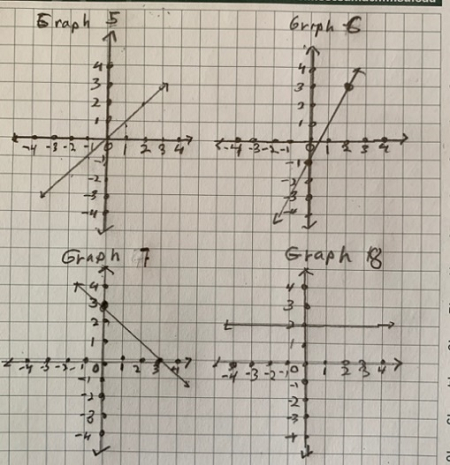 Graph 5
4
3
2
1
-4 -3 -2 -1 0 1 2 3 4
-1
-2
-3
-4
Griph 6
4
3
2
1
-4 -3 -2 -1 0 1 2 3 4
-1
-2
-3
-4
Graph 7
4
3
2
1
-4 -3 -2 -1 0 1 2 3 4
-1
-2
-3
-4
Graph 8
4
3
2
1
-4 -3 -2 -1 0 1 2 3 4
-1
-2
-3
-4